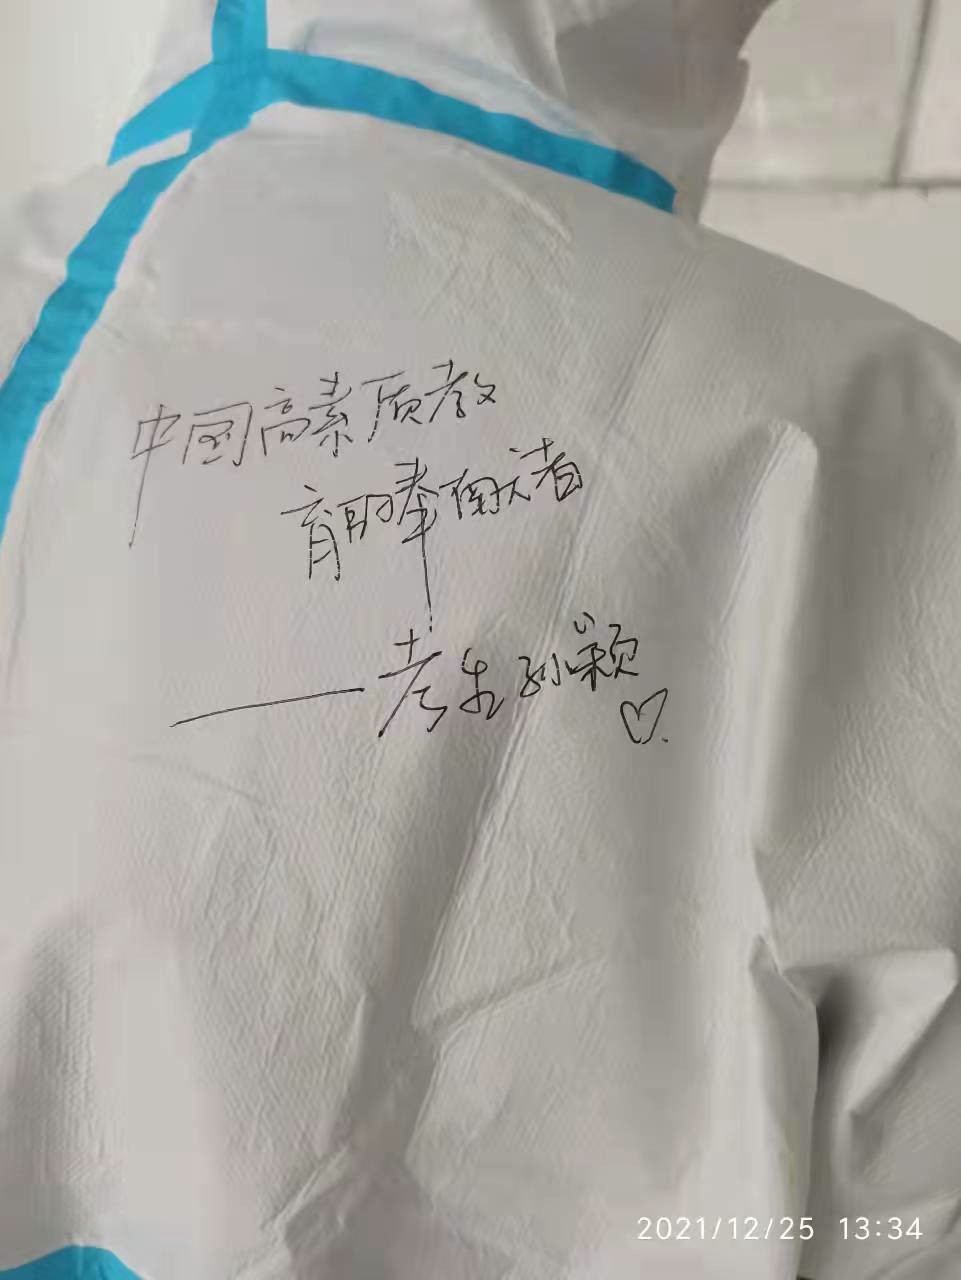 中国高素质教
育助攀倒大者
——考生 孙颖
2021/12/25 13:34